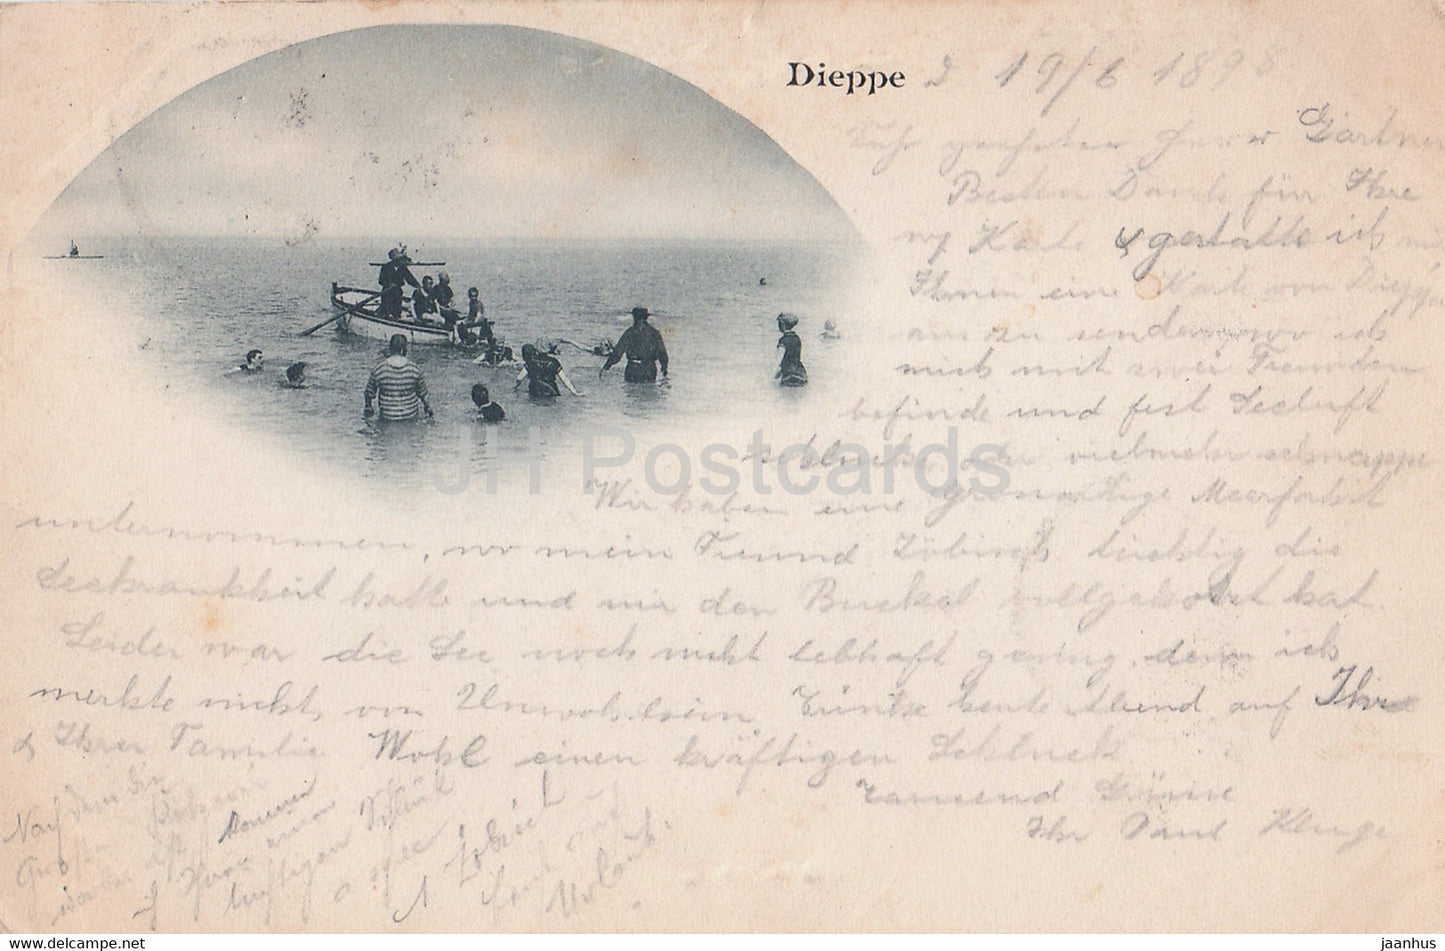 Dieppe d 19/6 1898
Sehr geehrter Herr Gärtner
Besten Dank für Ihre
Karte & gestatte ich mir
Ihnen eine Karte von Dieppe
aus zu senden, wo ich
mich mit zwei Freunden
befinde und fest Seeluft
schlucke, oder vielmehr schnappe
Wir haben eine grossartige Meerfahrt
unternommen, wo mein Freund Zöbisch tüchtig die
Seekrankheit hatte und mir den Buckel vollgekotzt hat.
Leider war die See noch nicht lebhaft genug, denn ich
merkte nichts von Unwohlsein. Trinke heute Abend auf Ihr
& Ihrer Familie Wohl einen kräftigen Schluck
Tausend Grüsse
Ihr Paul Kluge
Nach dem
ich
JH Postcards
delcampe.net
jaanhus